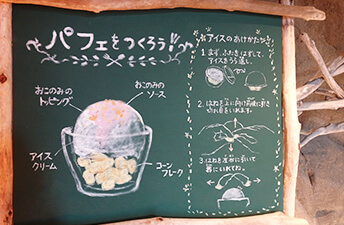 パフェをつくろう!!
おこのみの
トッピング
おこのみの
ソース
アイス
クリーム
コーン
フレーク
アイスのあけかた
1. まず、ふたをはずして、
アイスをうら返し。
2. はねを上に向け
切れ目をいれます。
3. はねを左右に引いて
器にいれてね。